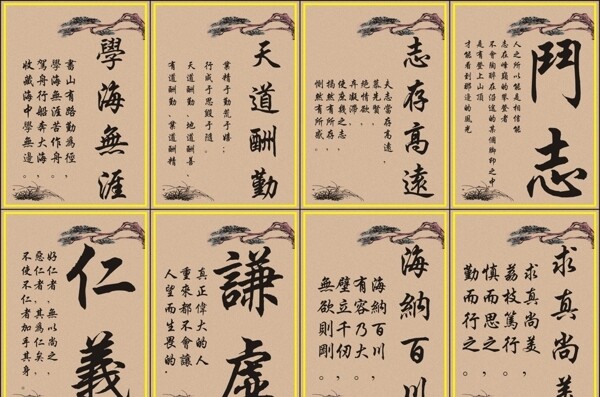 學海無涯
書山有路勤為徑，
學海無涯苦作舟。
駕舟行船奔大海，
收藏海中學無邊。
天道酬勤
業精于勤荒于嬉；
行成于思毀于隨。
天道酬勤、地道酬善、
有道酬勤、業道酬精
志存高遠
夫志當存高遠，
慕先賢，
絕情欲，
棄凝滯。
使庶幾之志
揭然有所存，
惻然有所感。
鬥志
人之所以能是相信能
志在峰巔的攀登者
不會陶醉在沿途的某個腳印之中
是有登上山頂
才能看到那邊的風光
仁義
好仁者，無以尚之，
惡仁者，其為仁矣，
不使不仁者加乎其身。
謙虛
真正偉大的人
重來都不會讓
人望而生畏的.
海納百川
海納百川，
有容乃大。
壁立千仞，
無欲則剛。
求真尚美
求真尚美，
荔枝篤行。
慎而思之，
勤而行之。